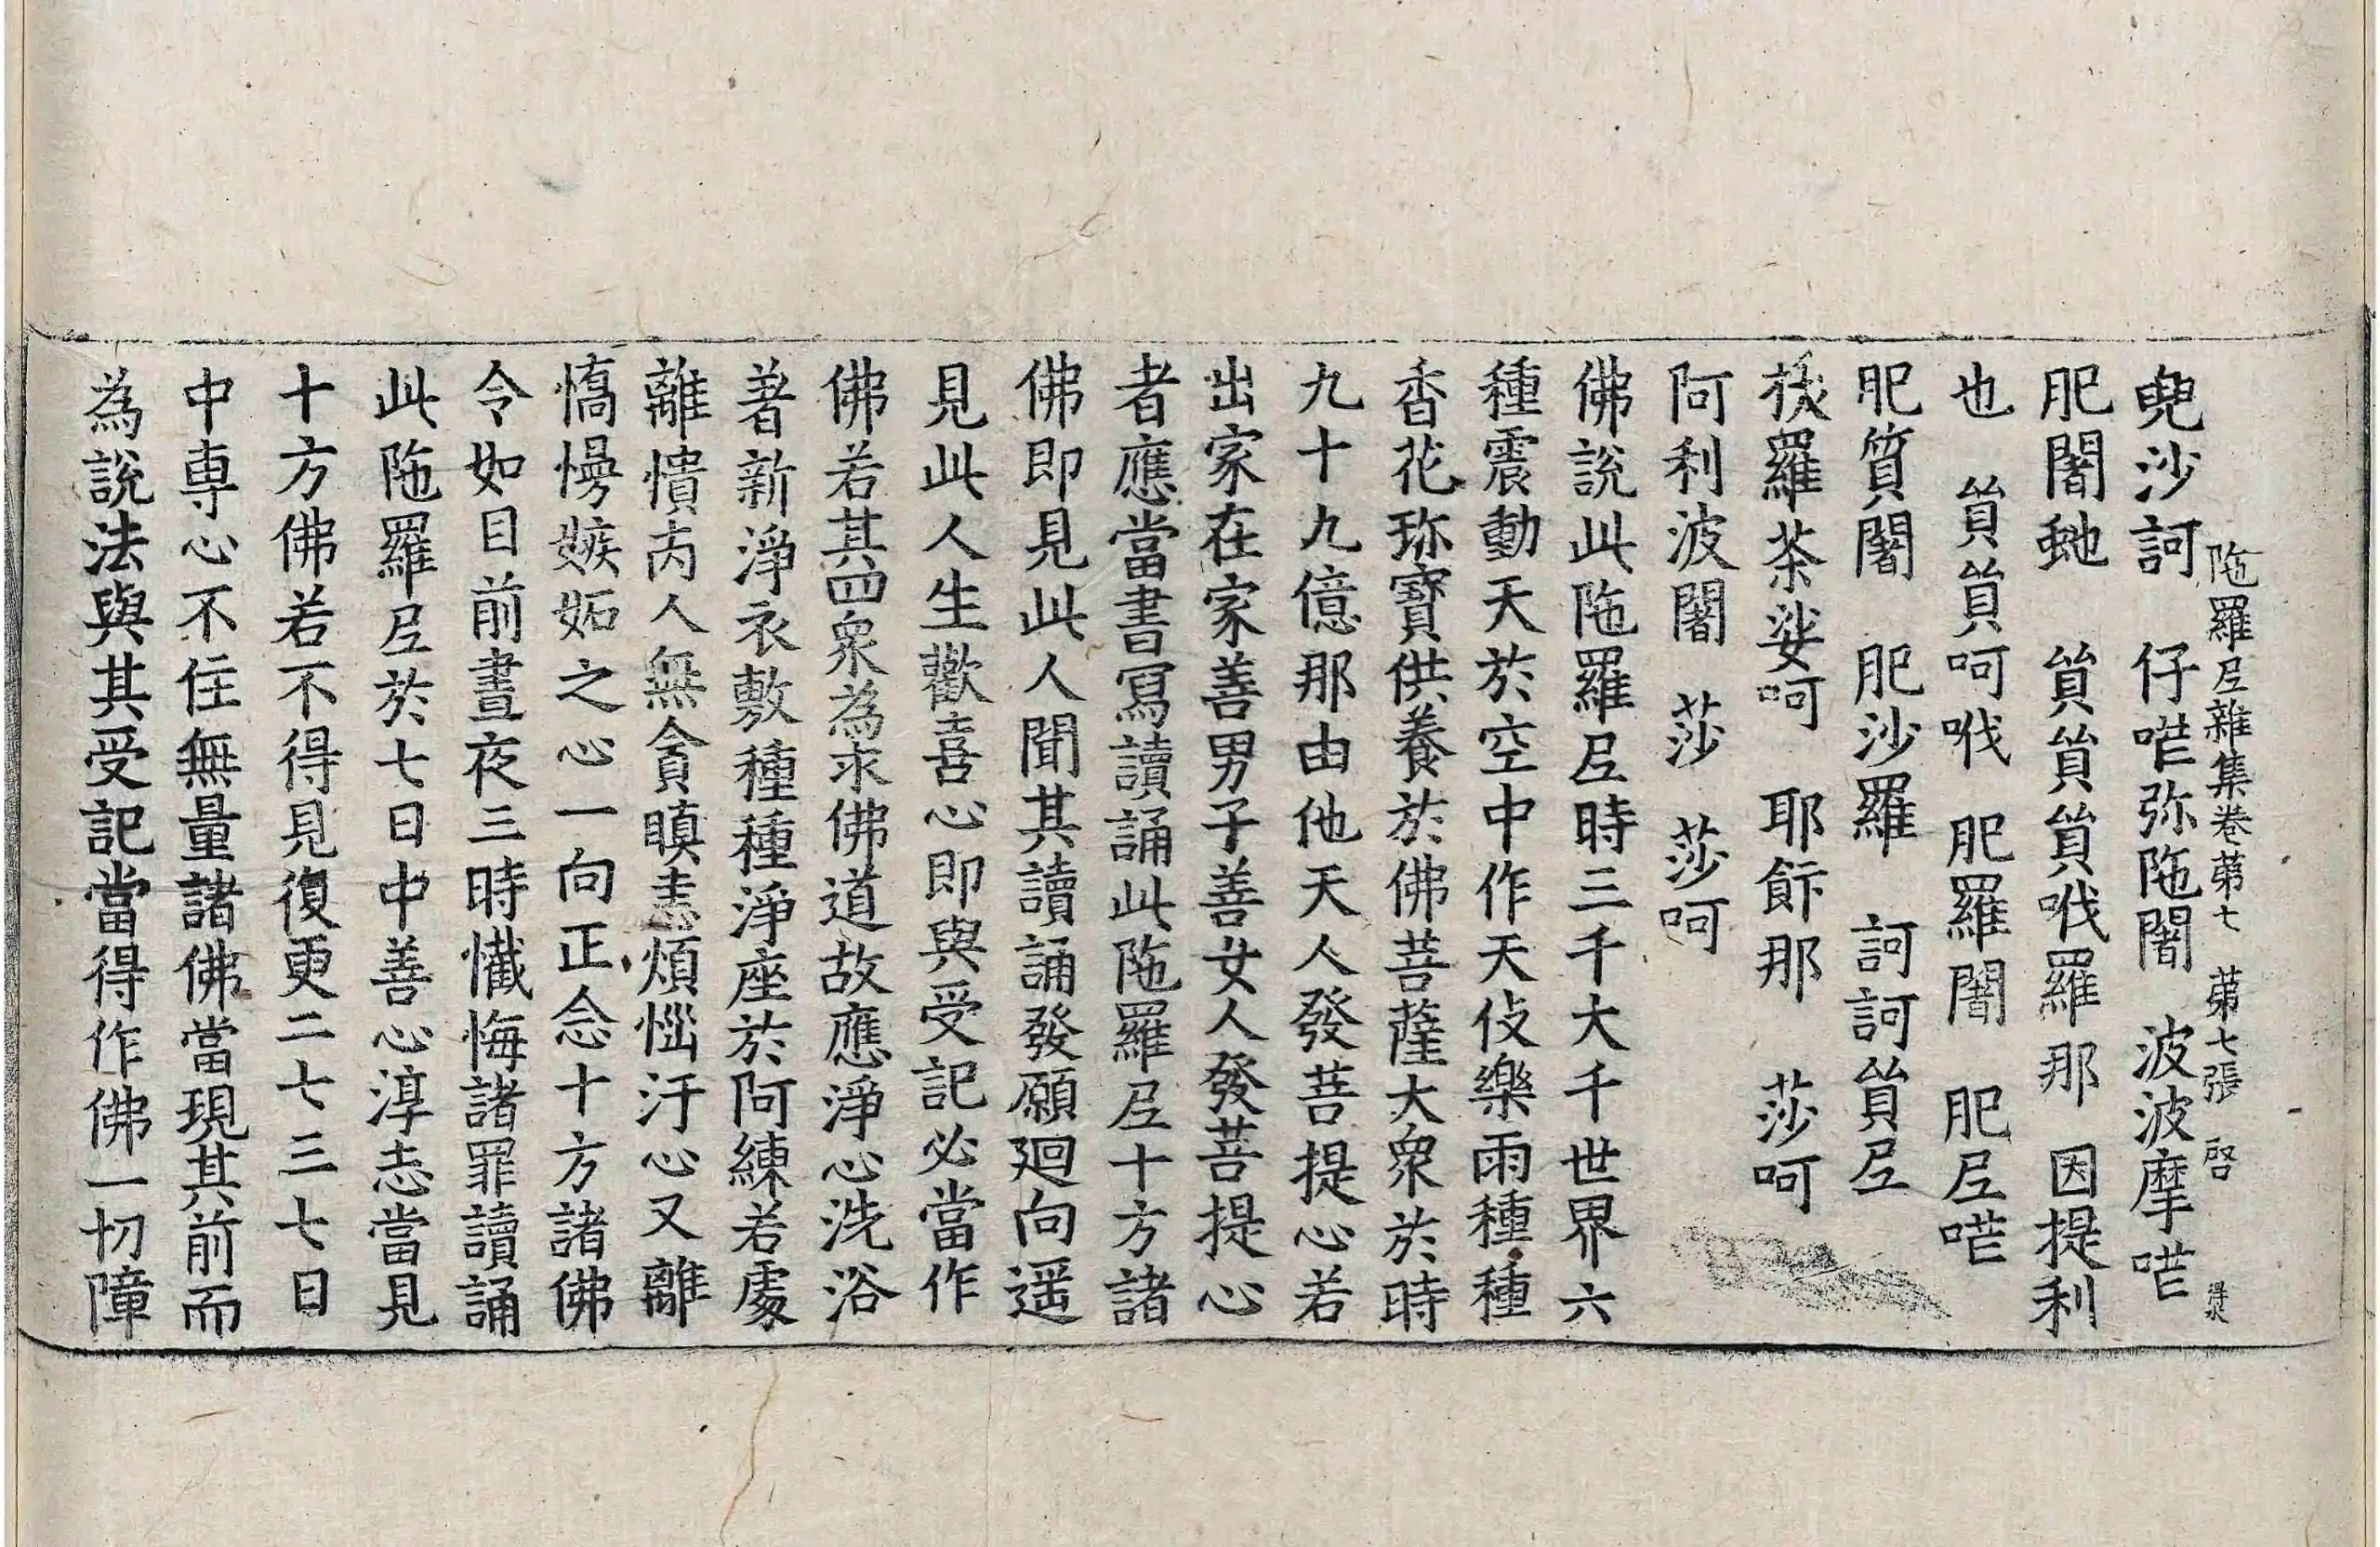 陁羅尼雜集卷苐七　苐七張　啓
㲋沙訶　仔㖿弥陁闍　波波摩㖿
肥闍虵　貿貿貿㖑羅那　因提利
也　貿貿呵㖑　肥羅闍　肥尼㖿
肥質闍　肥沙羅　訶訶貿尼
羅茶娑呵　耶䭀那　莎呵
阿利波闍　莎　莎呵
佛說此陁羅尼時三千大千世界六
種震動天於空中作天伎樂雨種種
香花珎寶供養於佛菩薩大衆於時
九十九億那由他天人發菩提心若
出家在家善男子善女人發菩提心
者應當書寫讀誦此陁羅尼十方諸
佛即見此人聞其讀誦發願廻向遥
見此人生歡喜心即與受記必當作
佛若其四衆為求佛道故應淨心洗浴
著新淨衣敷種種淨座於阿練若處
離憒丙人無貪瞋恚煩惱汙心又離
憍慢嫉妬之心一向正念十方諸佛
令如目前晝夜三時懴悔諸罪讀誦
此陁羅尼於七日中善心淳志當見
十方佛若不得見復更二七三七日
中專心不住無量諸佛當現其前而
為說法與其受記當得作佛一切障